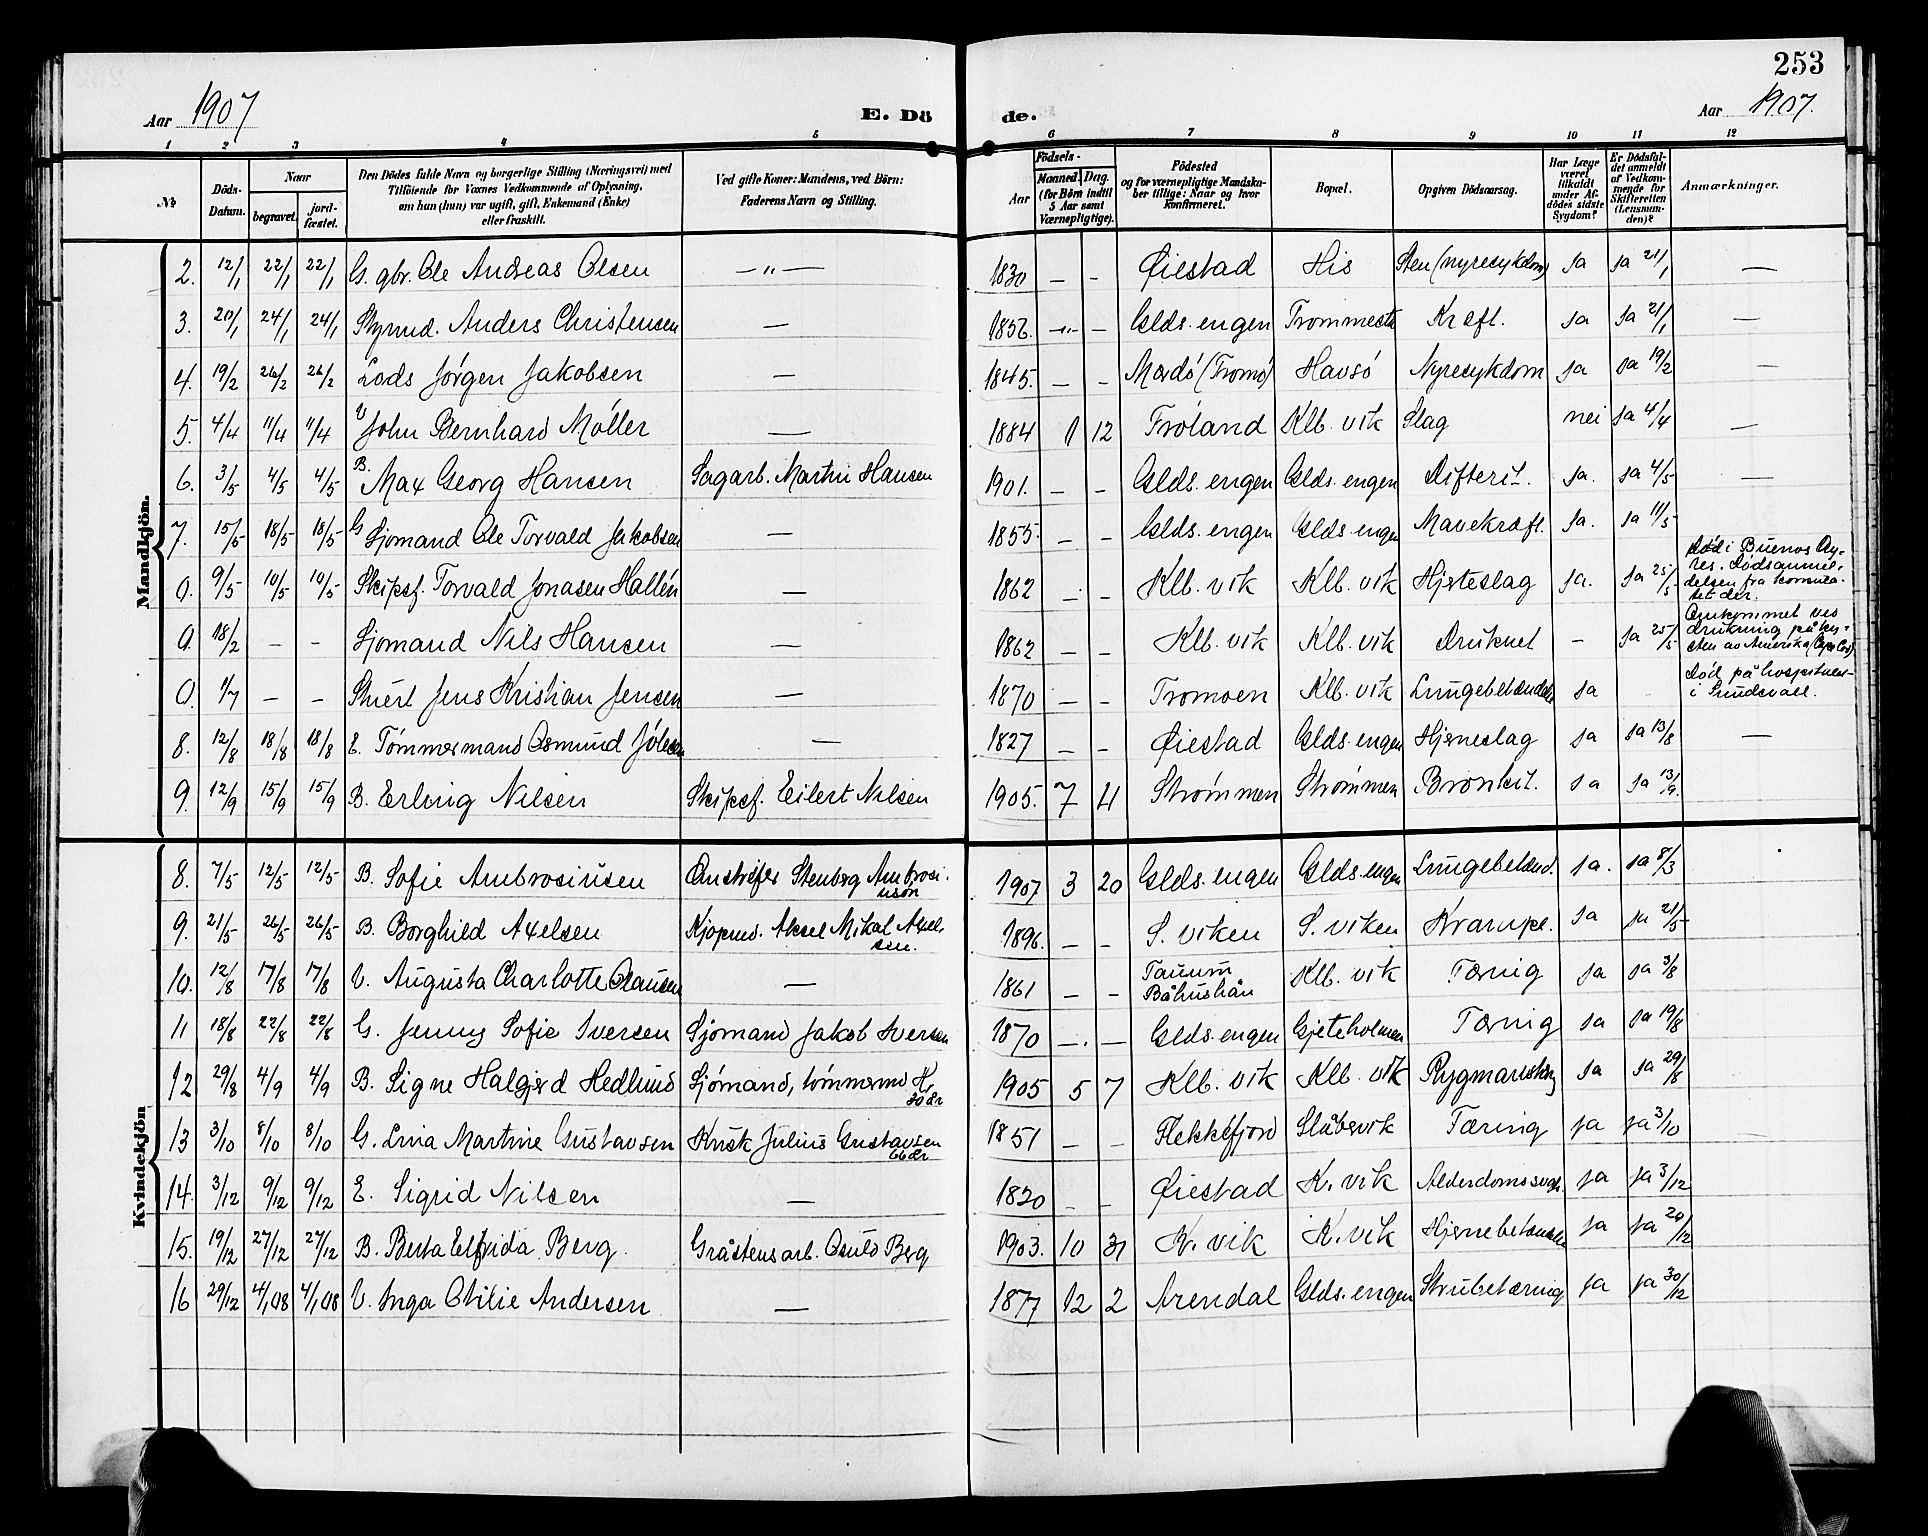 253
Aar 1907 E. Dö de. Aar 1907.
1 2 3 4 5 6 7 8 9 10 11 12
№ Döds-Datum. Naar begravet. jordfæstet. Den Dödes fulde Navn og borgerlige Stilling (Næringsvei) med Tilföiende for Voxnes Vedkommende af Oplysning, om han (hun) var ugift, gift, Enkemand (Enke) eller fraskilt. Ved gifte Koner: Mandens, ved Börn: Faderens Navn og Stilling. Födsels- Aar Maaned. Dag. (for Börn indtil 5 Aar samt Værnepligtige). Födested og for værnepligtige Mandskaber tillige: Naar og hvor konfirmeret. Bopæl. Opgiven Dödsaarsag. Har Læge været tilkaldt under Afdödes sidste Sygdom? Er Dödsfaldet anmeldt af Vedkommende for Skifteretten (Lensmanden)? Anmærkninger.
Mandkjön.
2. 12/1 22/1 22/1 G. gbr. Ole Andreas Olsen —"— 1830 — - Øiestad His Sten (nyresykdom) ja ja 21/1 —
3. 20/1 24/1 24/1 Styrmd. Anders Christensen — 1856. —"— - Glds. engen Kræft. ja ja 21/1 —
4. 19/2 26/2 26/2 Lods Jørgen Jakobsen — 1845. — - Mærdø (Tromø) Havsø Nyresykdom ja ja 19/2 —
5. 4/4 11/4 11/4 U John Bernhard Møller — 1884 1 12 Froland Klb. vik Slag nei ja 4/4 —
6. 3/5 4/5 4/5 B. Max Georg Hansen Sagarb. Martin Hansen 1901. — - Glds. engen Glds. engen Difterit. ja. ja 4/5 —
7. 15/5 18/5 18/5 G Sjømand Ole Torvald Jakobsen — 1855. — - Glds. engen Glds engen Mavekræft. ja. ja 11/5
0. 9/5 10/5 10/5 Skipsf. Torvald Jonasen Hallén — 1862 — - Klb. vik Klb. vik Hjerteslag ja. ja 25/5 Død i Buenos Ayres. Dødsanmeldelsen fra konsulatet der.
0. 18/2 - - Sjømand Nils Hansen — 1862 — - Klb. vik Klb. vik Druknet - ja 25/5 Omkommet ved drukning på kysten av Amerika (Cape Cod)
0. 1/7 - - Stuert Jens Kristian Jensen — 1870 — - Tromøen Klb. vik Lungebetændelse ja Død på hospitalet i Sundsvall.
8. 12/8 18/8 18/8 E. Tømmermand Osmund — 1827 — - Øiestad Glds. engen Hjerneslag ja ja 13/8 —
9. 12/9 15/9 15/9 B. Erling Nilsen Skipsf. Eilert Nilsen 1905. 7 4 Strømmen Strømmen Bronkit. ja ja 13/9.
Kvindekjön
8. 7/5 12/5 12/5 B. Sofie Ambrosiusen Stenberg Ambrosiuson 1907 3 20 Glds. engen Glds. engen Lungebetænd. ja. ja 8/3
9. 21/5 26/5 26/5 B. Borghild Axelsen Kjøpmd. Aksel Mikal Axelsen. 1896. — - S. viken S. viken Krampe. ja ja 21/5
10. 12/8 17/8 17/8 U. Augusta Charlotte Clausen — 1861 — - Tanum Båhuslän Klb. vik Tæring ja ja 3/8
11 18/8 22/8 22/8 G. Jenny Sofie Iversen Sjømand Jakob Iversen 1870 —. — Glds. engen Gjeteholmen Tæring ja ja 19/8
12 29/8 4/9 4/9 B. Signe Halgjerd Hedlund Sjømand, tømmermd H. 30 år 1905 5 7 Klb. vik Klb. vik ja ja 29/8
13 3/10 8/10 8/10 G. Lina Martine Gustavsen Kusk Julius Gustavsen 66 år 1851 — - Flekkefjord Slåbervik Tæring ja ja 3/10
14. 3/12 9/12 9/12 E. Sigrid Nilsen — 1820 - - Øiestad K. vik Alderdomssvagh. ja ja 3/12
15. 19/12 27/12 27/12 B. Berta Elfrida Berg. Gråstensarb. Osuld Berg 1903. 10 31 K. vik K. vik Hjernebetændelse ja ja 20/12
16 29/12 4/1 08 4/1 08 U. Inga Otilie Andersen — 1877 12 2 Arendal Glds. engen Strubetæring ja ja 30/12